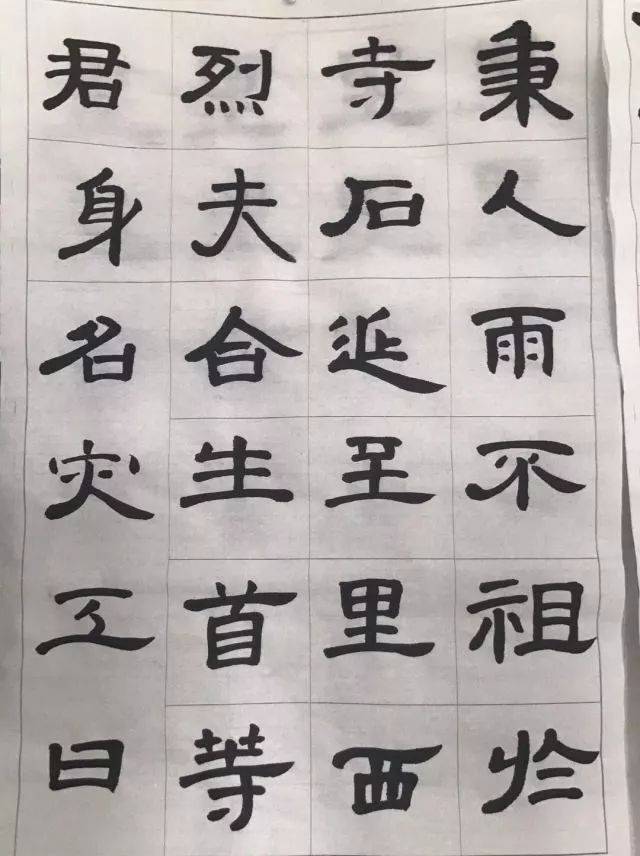 秉人雨不祖於
寺石延至里西
烈夫合生首等
君身名灾工曰